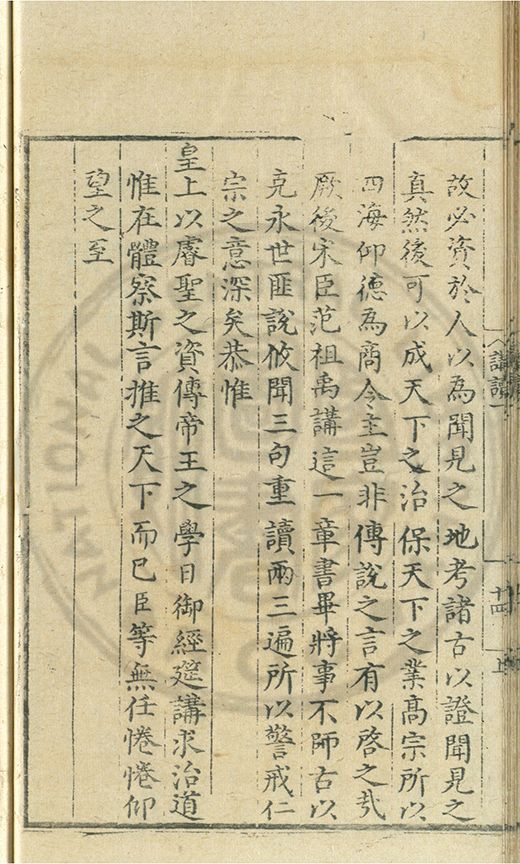 故必資於人以為聞見之地考諸古以證聞見之
真然後可以成天下之治保天下之業高宗所以
四海仰德為商令主豈非傳說之言有以啓之㢤
厥後宋臣范祖禹講這一章書畢將事不師古以
克永世匪說攸聞三句重讀兩三遍所以警戒仁
宗之意深矣恭惟
皇上以睿聖之資傳帝王之學日御經筵講求治道
惟在體察斯言推之天下而已臣等無任惓惓仰
望之至
講讀一
十四